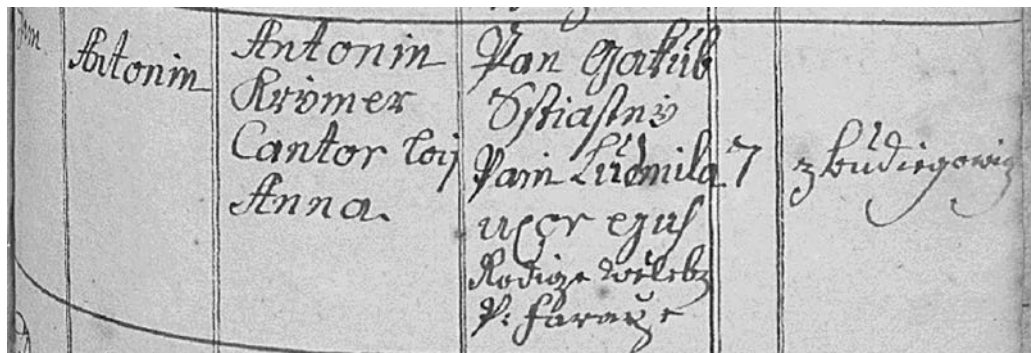 Antonin
Antonin
Krömer
Cantor loij
Anna.
Pan Gakub
Sstiastny
Pani Ludmila
uxor ejus
Rodicze welebz
P: Faraže
7
z Budiegowicz